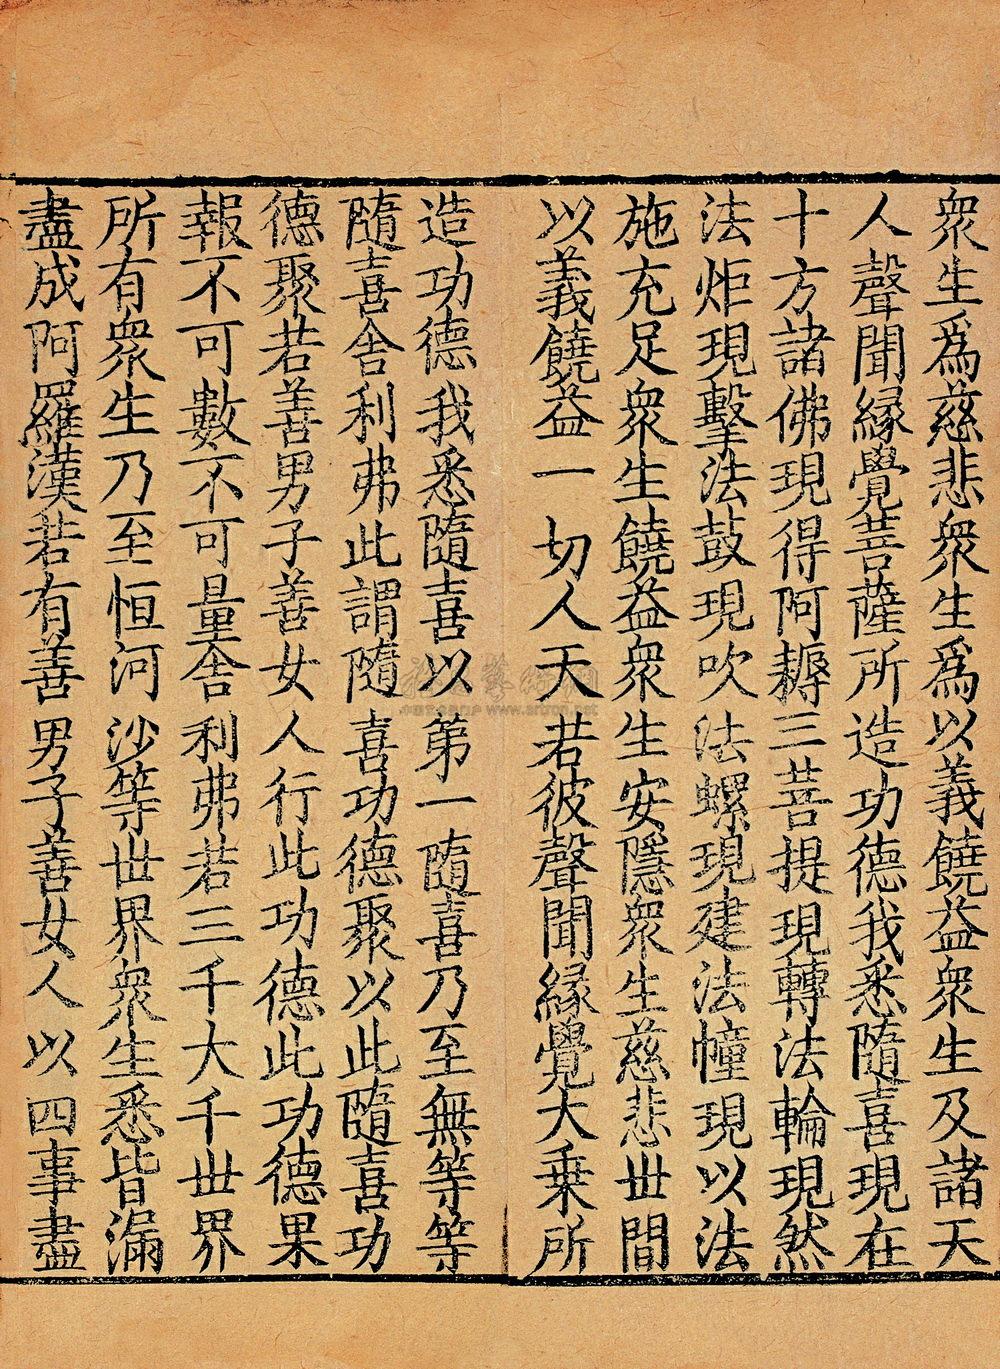 衆生爲慈悲衆生爲以義饒益衆生及諸天
人聲聞縁覺菩薩所造功德我悉隨喜現在
十方諸佛現得阿耨三菩提現轉法輪現然
法炬現擊法鼓現吹法螺現建法幢現以法
施充足衆生饒益衆生安隱衆生慈悲世間
以義饒益一切人天若彼聲聞縁覺大乗所
造功德我悉隨喜以第一隨喜乃至無等等
隨喜舎利弗此謂隨喜功德聚以此隨喜功
德聚若善男子善女人行此功德此功德果
報不可數不可量舎利弗若三千大千世界
所有衆生乃至恒河沙等世界衆生悉皆漏
盡成阿羅漢若有善男子善女人以四事盡
www.artron.net